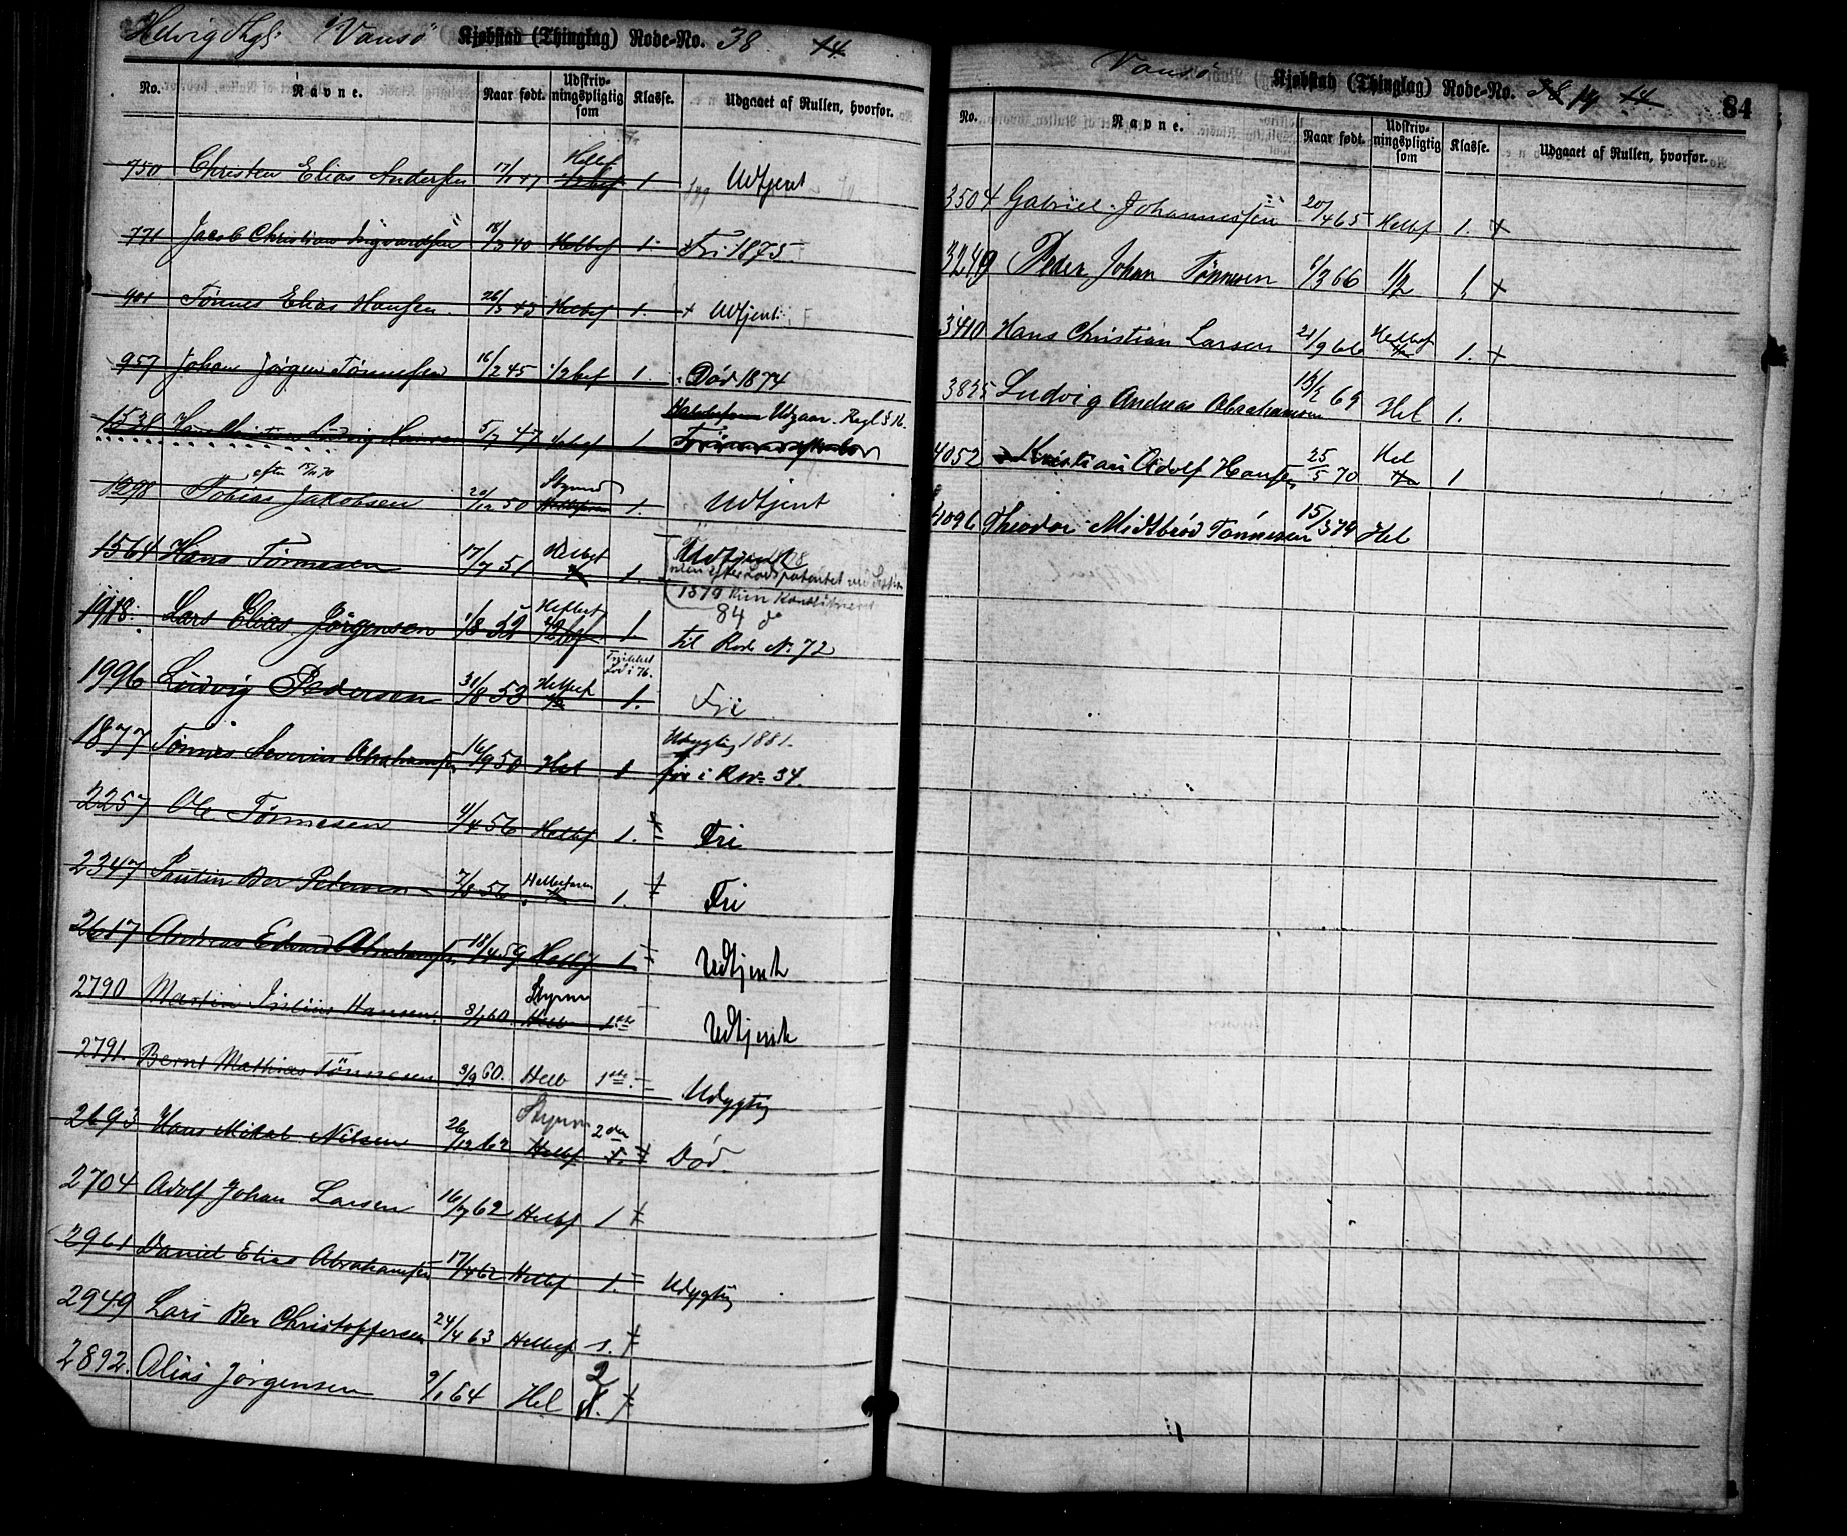 Vansø Kjøbstad (Thinglag) Rode-No. 38 14
No. Navne. Naar født. Udskriv-ningspligtig som Klasse. Udgaaet af Rullen, hvorfor.
750 Christen Elias Andersen 1 Udtjent
771 Jacob Christian Helbef 1. Fri 1875
901 Tønnes Elias Hansen. Helbef 1. + Udtjent
957 Johan Jørgen Tønnesen 16/2 45 1/2 bef 1. Død 1874
1530 Hansen 5/7 47 1/2 bef 1 Udgaar. Regl § 16.
1298 Tobias Jakobsen 20/12 50 1. Udtjent
1564 Hans Tønnesen 17/7 51 Helbef 1. Udtjent
84 do
1918. Lars Elias Jørgensen Helbef 1 til Rode No 72
1996 Ludvig Pedersen 31/8 53 Helbef 1. Fri
1877 Tønnes Severin Abrahamsen 16/9 50 Hel 1 Udygtig 1881. før i Rode 34.
2257 Ole Tønnesen 4/4 56 Helbf 1. Fri
2347 Ber Petersen 7/8 56 1. Fri
2617 Andreas Edvard Abrahamsen 18/4 59 Helbf 1 Udtjent
2790 Martin Hansen. Styrm Helb 1ste Udtjent
2791. Bernt Mathias Tønnesen 3/9 60. Helb 1ste Udygtig
2693 Hans Mikal Nilsen 26/12 62 Styrm Helbf 2den Død.
2704 Adolf Johan Larsen 16/7 62 Helbf 1
2961 Daniel Elias Abrahamsen 17/4 62 Helbf 1. Udygtig
2949 Lars Ber Christoffersen 24/4 63 Helbef 1.
2892. Jørgensen 9/1 64 Hel 2
Vansø Kjøbstad (Thinglag) Rode-No. 38 14 14
84
No. Navne. Naar født. Udskriv-ningspligtig som Klasse. Udgaaet af Rullen, hvorfor.
3504 Gabriel Johannessen 20/4 65 Helbf 1. +
3249 Peder Johan Tønnesen 6/3 66 1/2 1 +
3410 Hans Christian Larsen 21/9 66 Helbef 1. +
3835 Ludvig Andreas Abrahamsen 69 Hel 1.
4052 Kristian Adolf Hansen 25/5 70 Hel 1
4096 Theodor Midtbrød Tønnesen 15/3 74 Hel